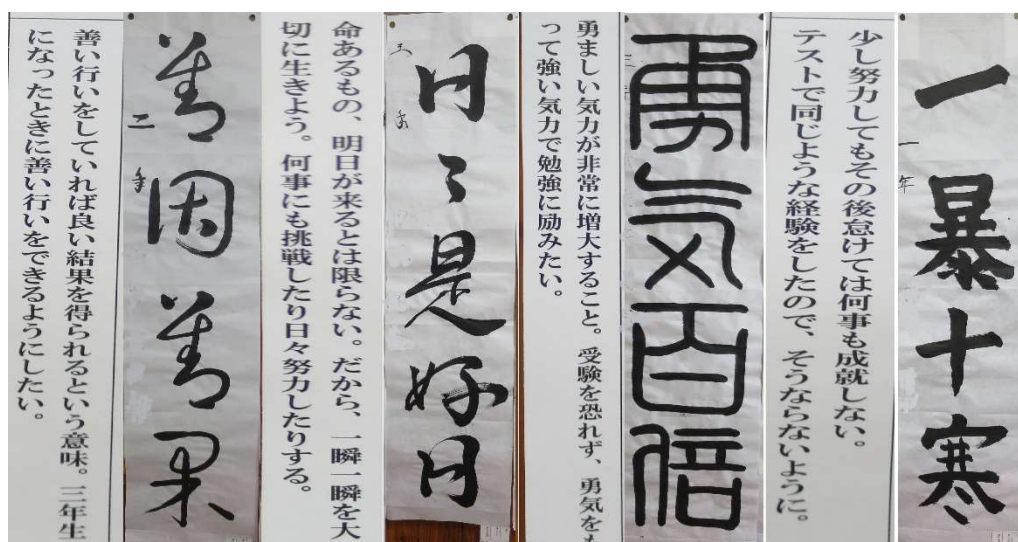 一暴十寒
一年
少し努力してもその後怠けては何事も成就しない。
テストで同じような経験をしたので、そうならないように。
勇気百倍
三年
勇ましい気力が非常に増大すること。受験を恐れず、勇気をも
って強い気力で勉強に励みたい。
日々是好日
命あるもの、明日が来るとは限らない。だから、一瞬一瞬を大
切に生きよう。何事にも挑戦したり日々努力したりする。
善因善果
二年
善い行いをしていれば良い結果を得られるという意味。三年生
になったときに善い行いをできるようにしたい。